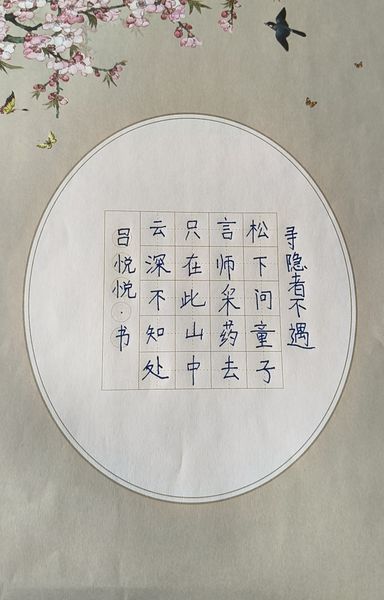 寻隐者不遇
松下问童子
言师采药去
只在此山中
云深不知处
吕悦悦·书